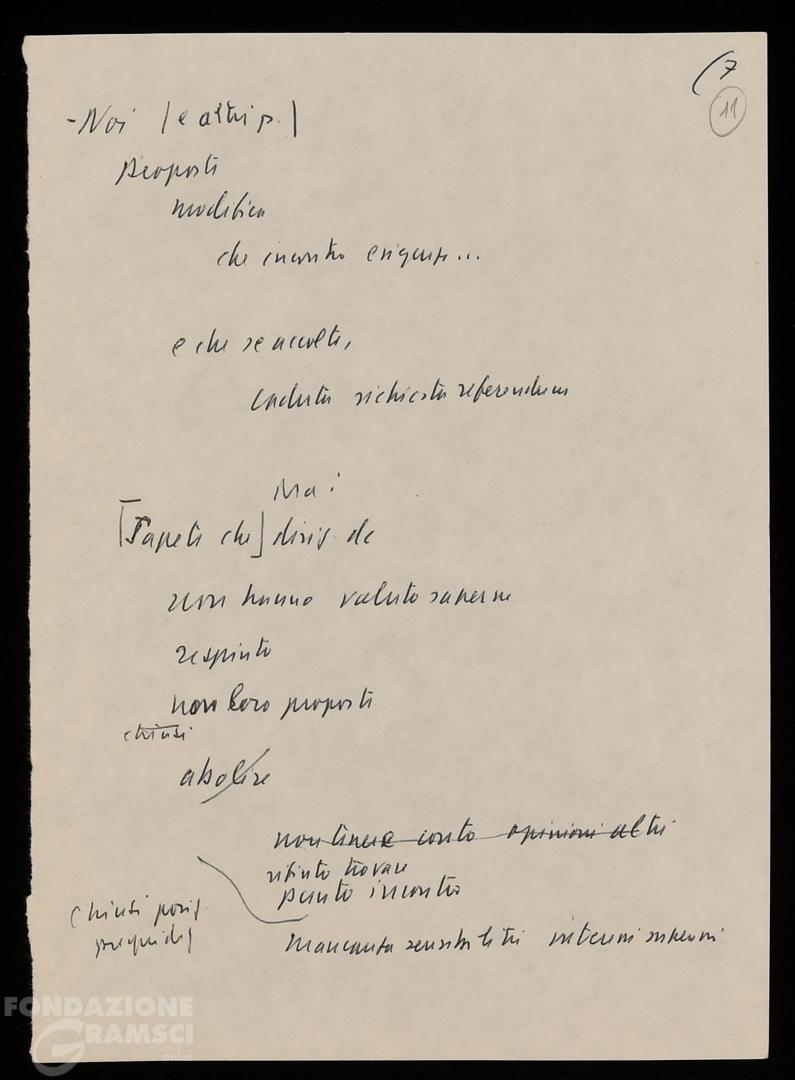 (7
11
- Noi (e altri p.)
proposte
modifica
che incontra esigenze...
e che se accolte,
caduta richiesta referendum
Ma:
[Sapete che] dirig. dc
non hanno voluto saperne
respinto
non loro proposte
chiusi
abolire
non tenere conto opinioni altri
rifiuto trovare
punto incontro
Chiusi posiz.
pregiud.
Mancanza sensibilità interessi supremi
FONDAZIONE
GRAMSCI
onlus